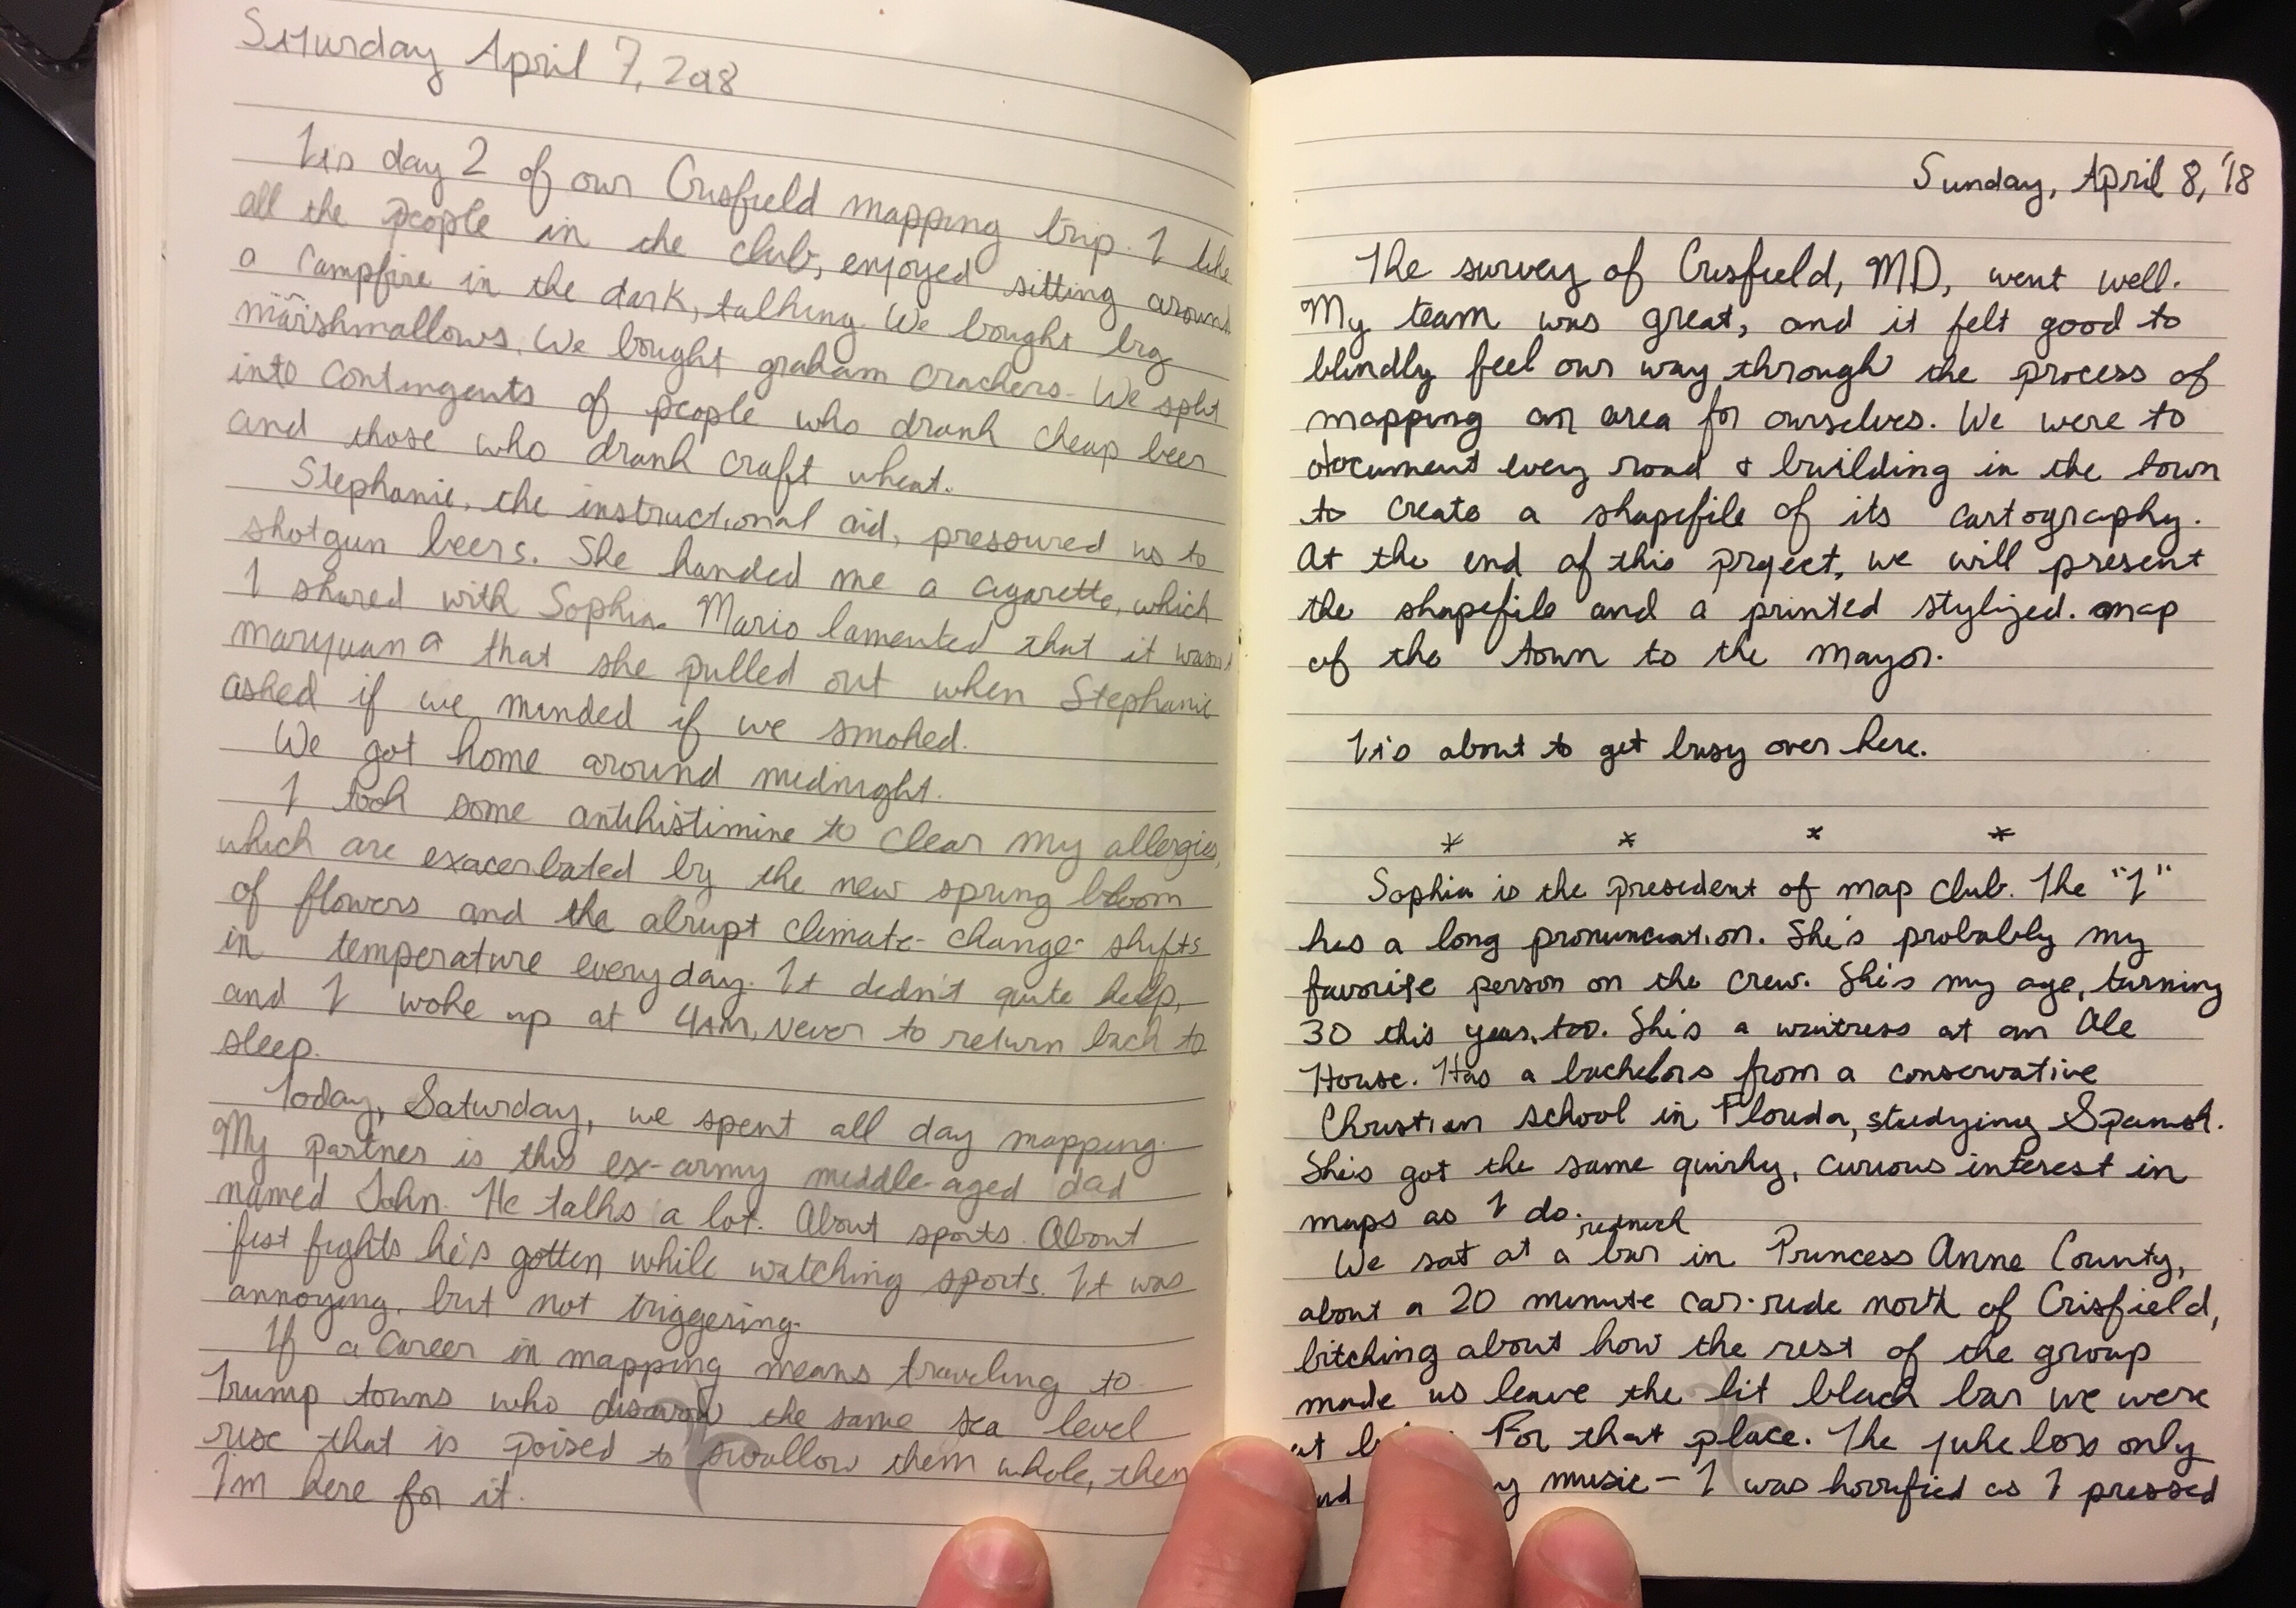 Saturday April 7, 2018
It is day 2 of our Crisfield mapping trip. I like
all the people in the club, enjoyed sitting around
a campfire in the dark, talking. We bought big
marshmallows. We bought graham crackers. We split
into contingents of people who drank cheap beer
and those who drank craft wheat.
Stephanie, the instructional aid, pressured us to
shotgun beers. She handed me a cigarette, which
I shared with Sophia. Mario lamented that it wasn't
marijuana that she pulled out when Stephanie
asked if we minded if we smoked.
We got home around midnight.
I took some antihistimine to clear my allergies,
which are exacerbated by the new spring bloom
of flowers and the abrupt climate-change-shifts
in temperature everyday. It didn't quite help,
and I woke up at 4AM, never to return back to
sleep.
Today, Saturday, we spent all day mapping.
My partner is this ex-army middle-aged dad
named John. He talks a lot. About sports. About
fist fights he's gotten while watching sports. It was
annoying, but not triggering.
If a career in mapping means traveling to
Trump towns who disavow the same sea level
rise that is poised to swallow them whole, then
I'm here for it.
Sunday, April 8, '18
The survey of Crisfield, MD, went well.
My team was great, and it felt good to
blindly feel our way through the process of
mapping an area for ourselves. We were to
document every road & building in the town
to create a shapefile of its cartography.
At the end of this project, we will present
the shapefile and a printed stylized map
of the town to the mayor.
It is about to get busy over here.
* * * *
Sophia is the president of map club. The "I"
has a long pronunciation. She's probably my
favorite person on the crew. She's my age, turning
30 this year, too. She's a waitress at an Ale
House. Has a bachelors from a conservative
Christian school in Florida, studying Spanish.
She's got the same quirky, curious interest in
maps as I do.
We sat at a redneck bar in Princess Anne County,
about a 20 minute car-ride north of Crisfield,
bitching about how the rest of the group
made us leave the lit black bar we were
at For that place. The juke box only
music – I was horrified as I pressed